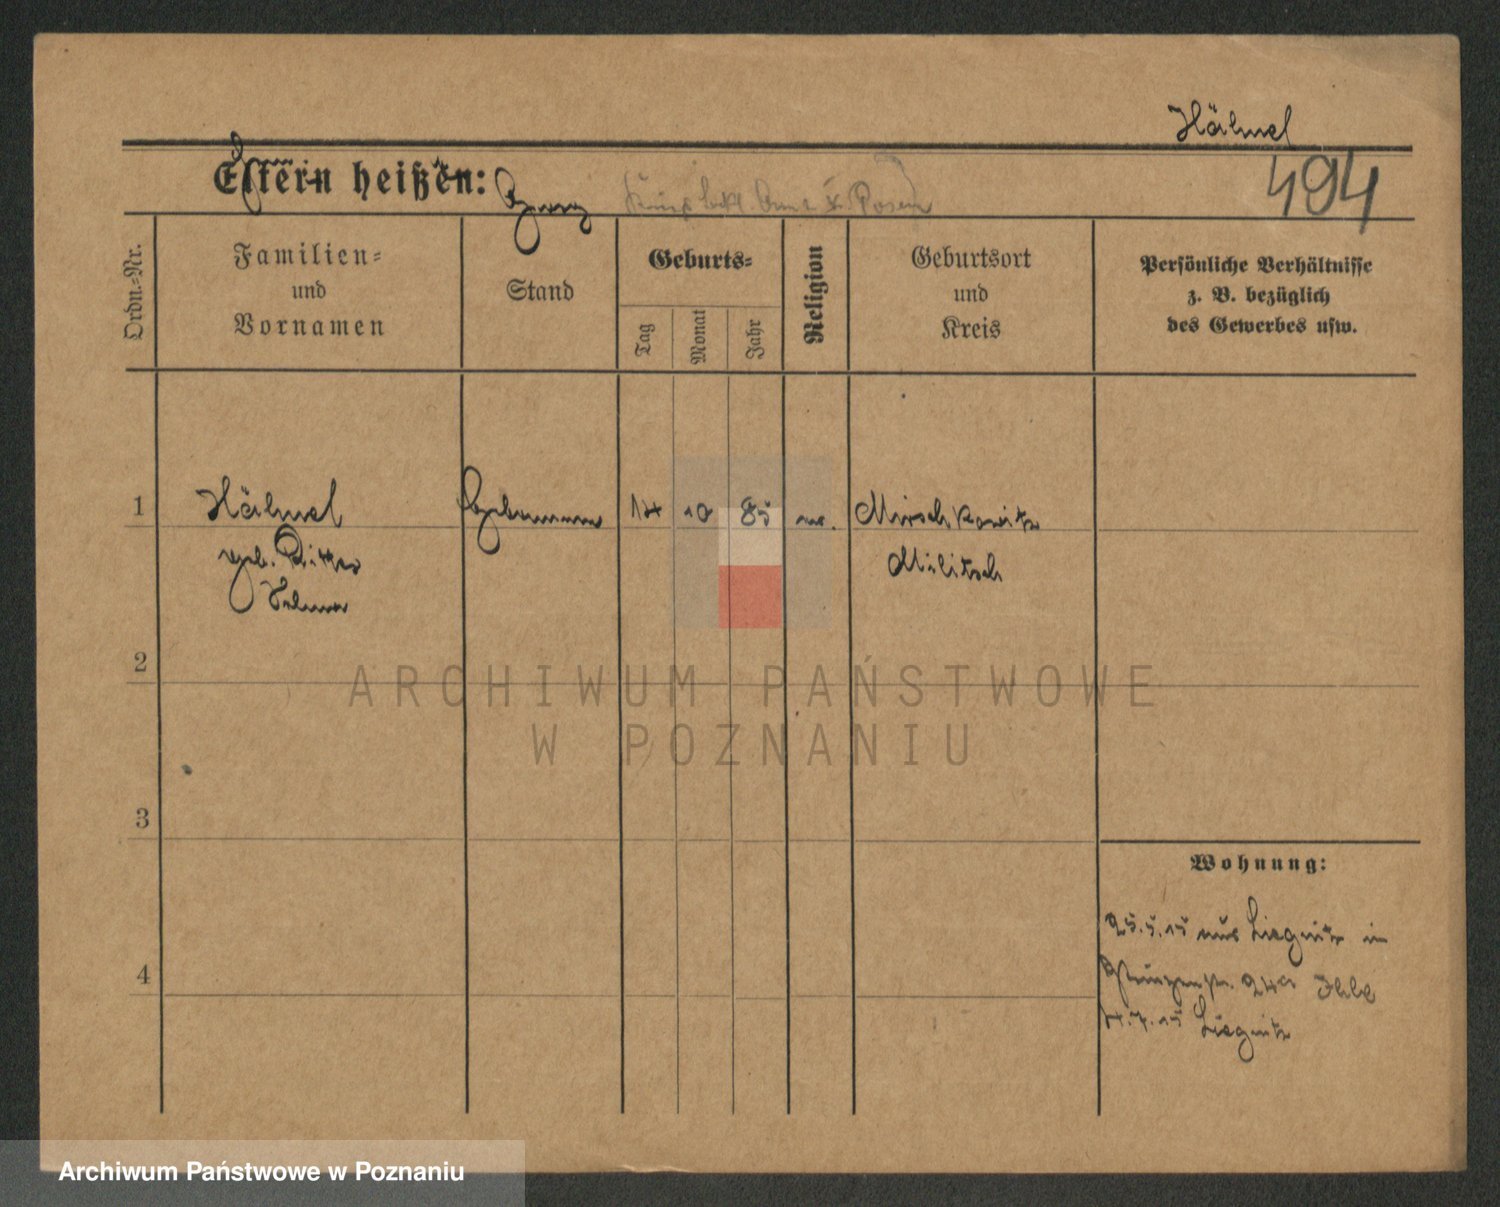 Hähnel
494
Eltern heißen:
Ordn.-Nr.
Familien-
und
Vornamen
Stand
Geburts-
Tag
Monat
Jahr
Religion
Geburtsort
und
Kreis
Persönliche Verhältnisse
z. B. bezüglich
des Gewerbes usw.
1
Hähnel
14
10
85
ev.
Mirschkowitz
geb.
Militsch
2
ARCHIWUM PAŃSTWOWE
W POZNANIU
3
Wohnung:
25.5.15 aus Liegnitz in
24a
4
4.7.15 Liegnitz
Archiwum Państwowe w Poznaniu